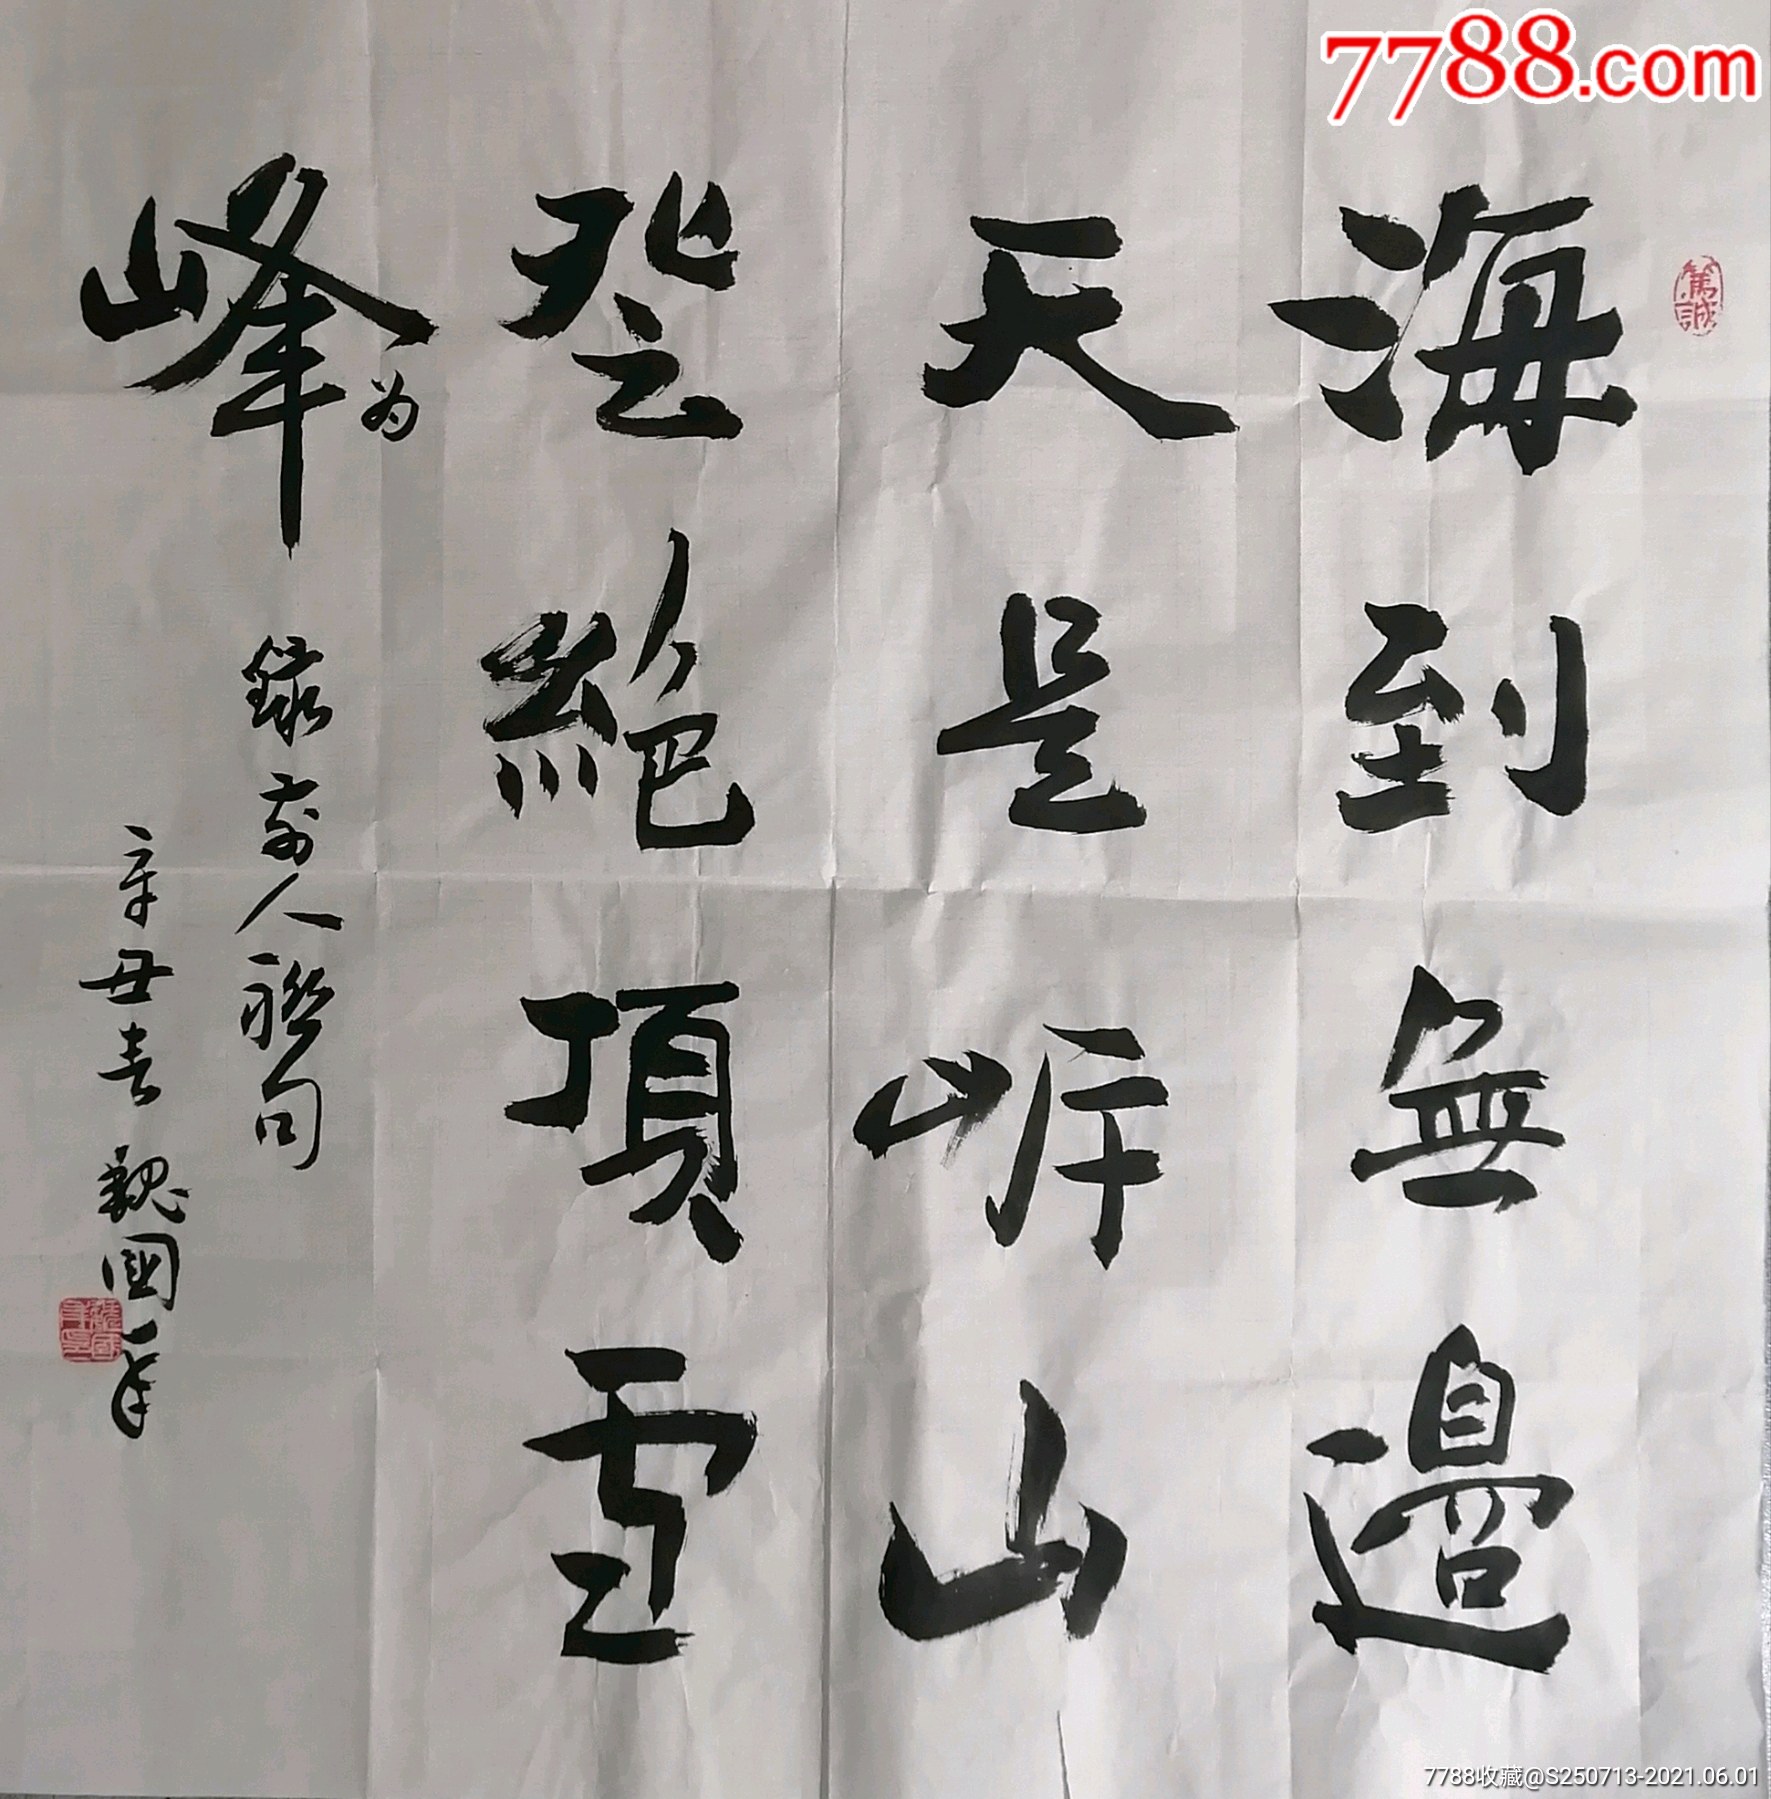 海到無邊
天是岸山
登絕頂雪
峰为
錄前人聯句
辛丑春 魏國平
篤誠
7788.com
7788收藏@S250713-2021.06.01